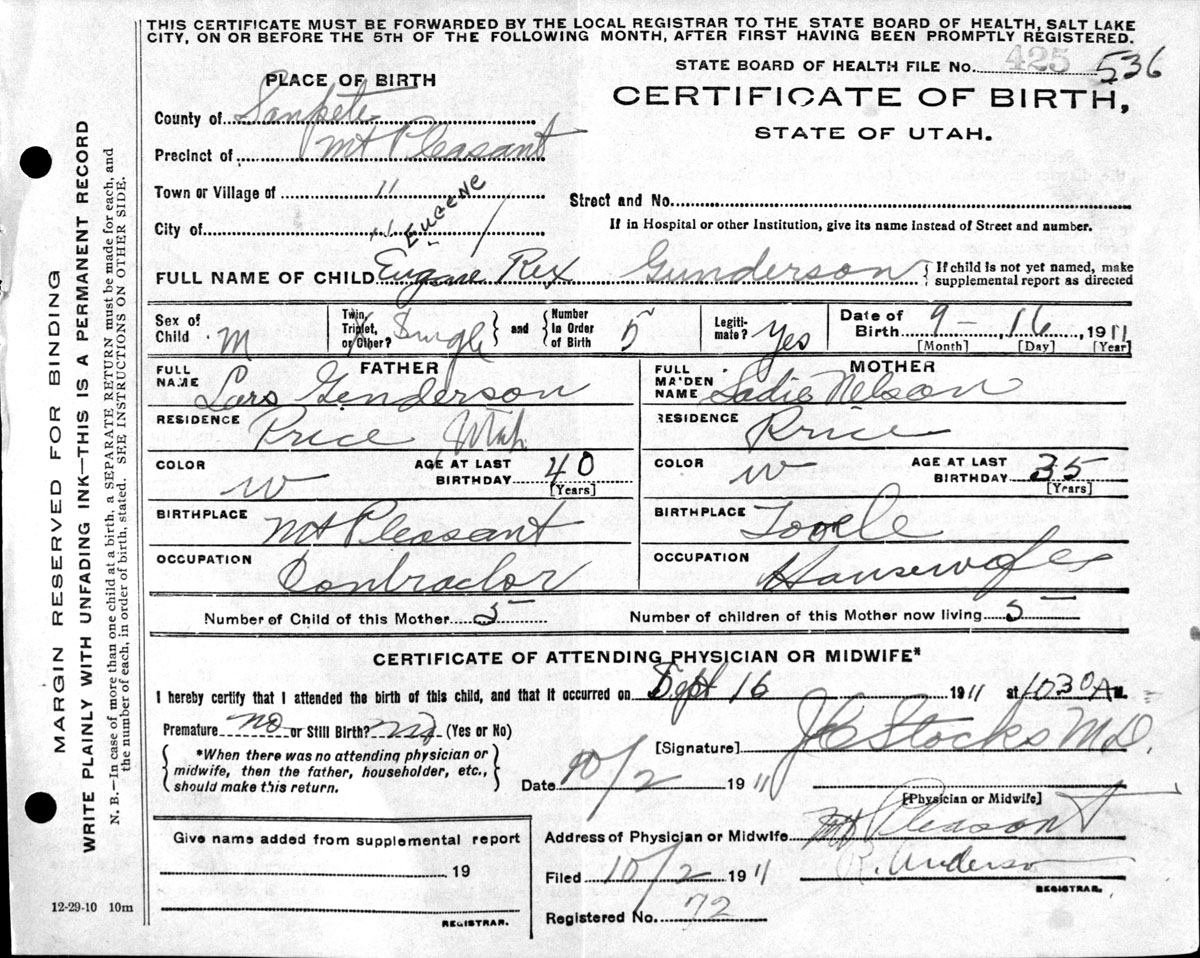 THIS CERTIFICATE MUST BE FORWARDED BY THE LOCAL REGISTRAR TO THE STATE BOARD OF HEALTH, SALT LAKE
CITY, ON OR BEFORE THE 5TH OF THE FOLLOWING MONTH, AFTER FIRST HAVING BEEN PROMPTLY REGISTERED.
MARGIN RESERVED FOR BINDING
WRITE PLAINLY WITH UNFADING INK—THIS IS A PERMANENT RECORD
N. B.—In case of more than one child at a birth, a SEPARATE RETURN must be made for each, and
the number of each, in order of birth, stated. SEE INSTRUCTIONS ON OTHER SIDE.
PLACE OF BIRTH
STATE BOARD OF HEALTH FILE No. 425 536
CERTIFICATE OF BIRTH,
STATE OF UTAH.
County of Sanpete
Precinct of Mt Pleasant
Town or Village of "
Street and No.
City of
If in Hospital or other Institution, give its name instead of Street and number.
EUGENE
FULL NAME OF CHILD Eugene Rex Gunderson { If child is not yet named, make
supplemental report as directed
Sex of Child M
Twin, Triplet, or Other? Single } and { Number in Order of Birth 5
Legitimate? Yes
Date of Birth 9 - 16, 1911
[Month] [Day] [Year]
FATHER
MOTHER
FULL NAME Lars Genderson
FULL MAIDEN NAME Sadie Nelson
RESIDENCE Price Utah
RESIDENCE Price
COLOR W AGE AT LAST BIRTHDAY 40 [Years]
COLOR W AGE AT LAST BIRTHDAY 35 [Years]
BIRTHPLACE Mt Pleasant
BIRTHPLACE Tooele
OCCUPATION Contractor
OCCUPATION Housewife
Number of Child of this Mother 5
Number of children of this Mother now living 5
CERTIFICATE OF ATTENDING PHYSICIAN OR MIDWIFE*
I hereby certify that I attended the birth of this child, and that it occurred on Sept 16 1911 at 1030 A M.
Premature no or Still Birth? no (Yes or No)
*When there was no attending physician or
midwife, then the father, householder, etc.,
should make this return.
[Signature] J C Stocks M.D.
Date 10/2 1911
[Physician or Midwife]
Give name added from supplemental report
19
REGISTRAR.
Address of Physician or Midwife Mt Pleasant
Filed 10/2 1911 Anderson
REGISTRAR.
Registered No. 72
12-29-10 10m